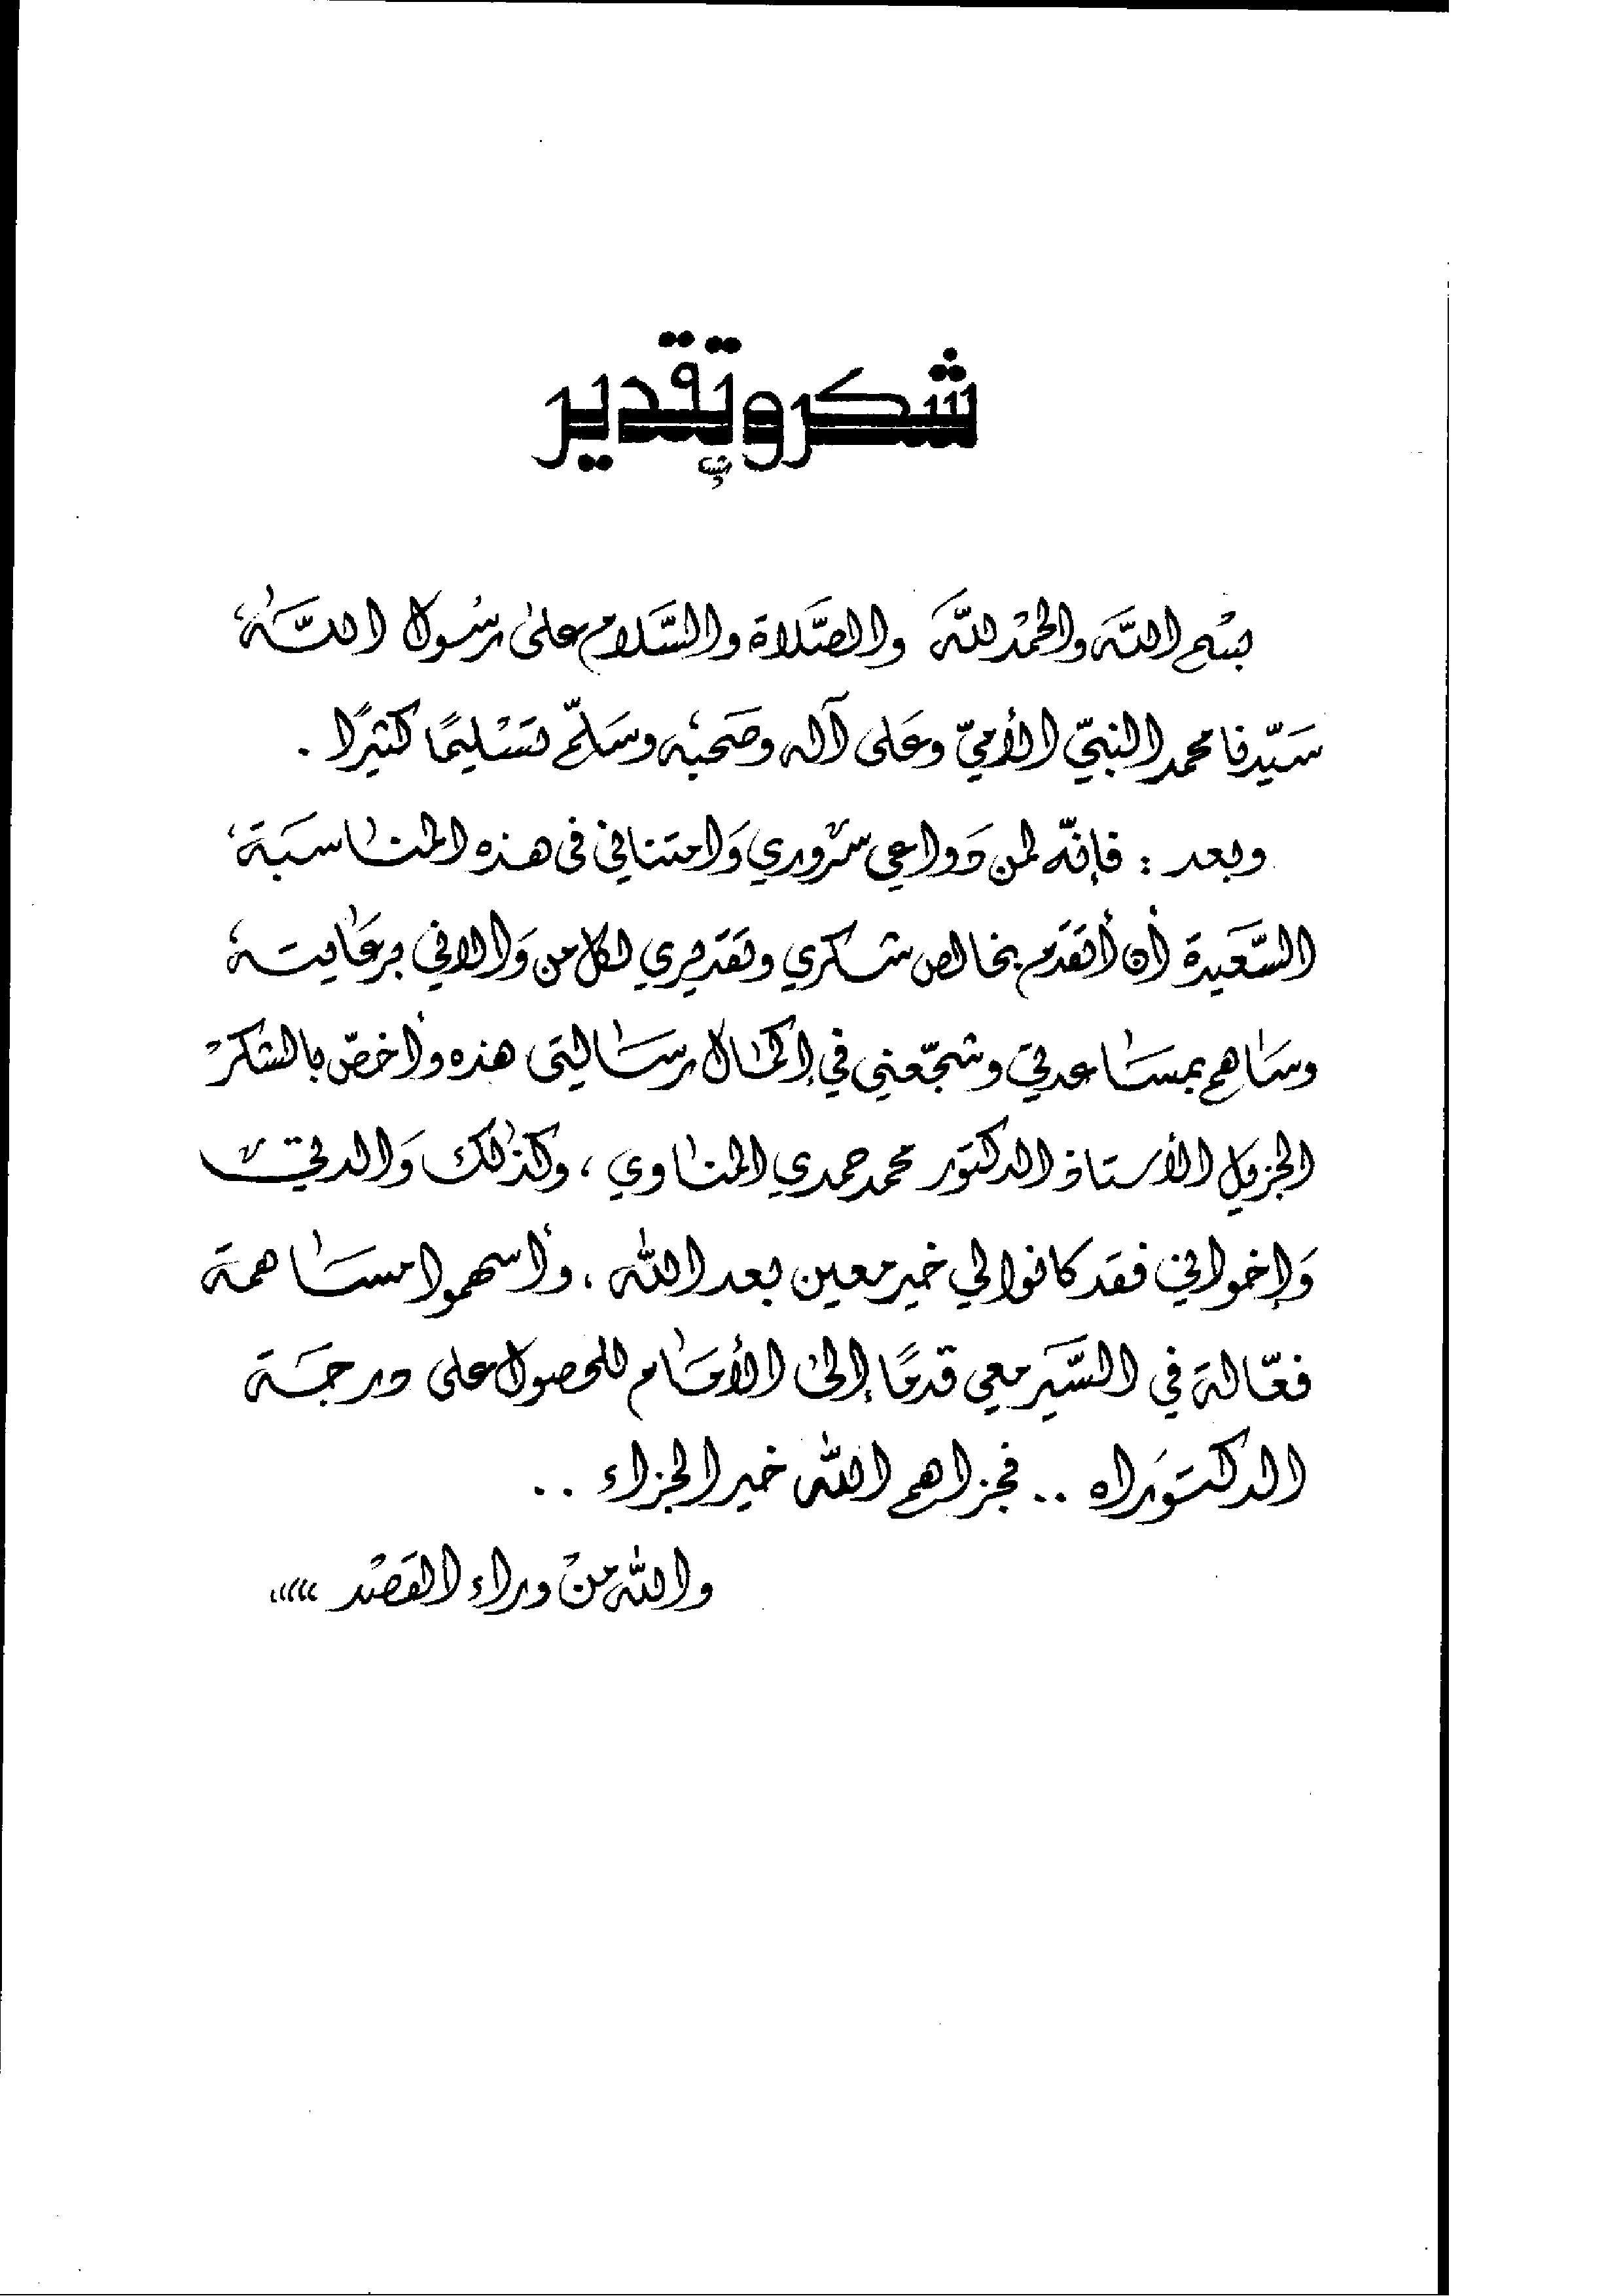 شكر وتقدير
ب
بسْم اللَّه والحمْد للَّه والصَّلاة والسَّلام على رسُول اللَّه
سَيّدنا محمد النبيّ الأميّ وعَلى آله وصَحبه وسَلّم تسْليمًا كثيرًا .
وبعد : فإنّه لمن دَواعي سروري وَامتناني فى هذه المناسبَة
السَّعيدة أن أتقدّم بخالص شكري وتقديري لكل من وَالاني برعَايته
وسَاهم بمسَاعدتي وشجّعني في إكمال رسَالتى هذه وأخصّ بالشكرْ
الجزيل الأستاذ الدكتور محمد حمدي المناوي ، وكذلك وَالدتي
وَإخواني فقد كانوا لي خير معين بعد الله ، وأسهموا مسَاهمة
فعّالة في السَّير معي قدمًا إلى الأمَام للحصول على درجَة
الدكتورَاه .. فجزاهم الله خير الجزاء ..
والله منْ وراء القصْد ،،،،،